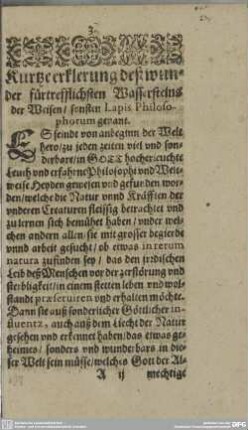 3
Kurtze erklerung deß wun-
der fürtrefflichsten Wassersteins
der Weisen / sonsten Lapis Philoso-
phorum genant.
ES seindt von anbeginn der Welt
hero / zu jeden zeiten viel vnd son-
derbare / in GOTT hocherleuchte
Leuth vnd erfahrne Philosophi vnd Welt-
weise Heyden gewesen vnd gefunden wor-
den / welche die Natur vnnd Kräfften der
vnderen Creaturen fleissig betrachtet vnd
zu lernen sich bemühet haben / vnder wel-
chen andern allen sie mit grosser begierde
vnnd arbeit gesucht / ob etwas in rerum
natura zufinden sey / das den jrrdischen
Leib deß Menschen vor der zerstörung vnd
sterbligkeit / in einem stetten leben vnd wol-
standt præserviren vnd erhalten möchte.
Dann sie auß sonderlicher Göttlicher in-
fluentz, auch auß dem Liecht der Natur
gesehen vnd erkennet haben / das etwas ge-
heimes / sonders vnd wunderbars in die-
ser Welt sein müsse / welches Gott der Al-
A ij mechtige